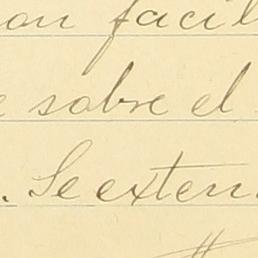 on facil
e sobre el
. Se exten